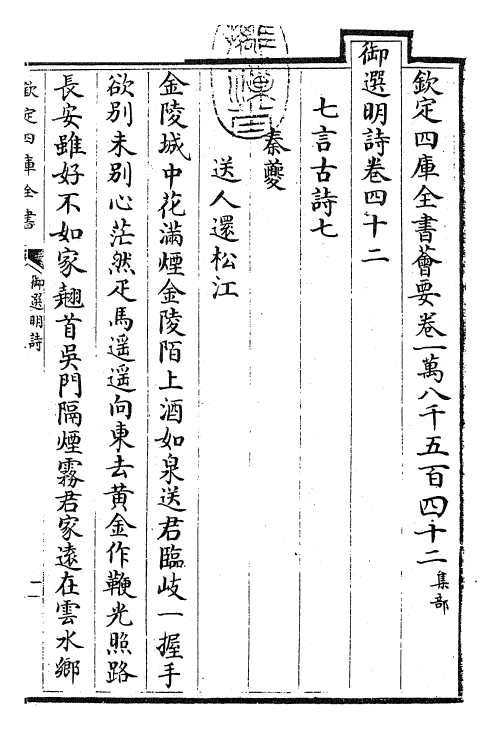 欽定四庫全書薈要卷一萬八千五百四十二 集部
御選明詩卷四十二
七言古詩七
秦夔
送人還松江
金陵城中花滿煙金陵陌上酒如泉送君臨岐一握手
欲別未別心茫然疋馬遥遥向東去黃金作鞭光照路
長安雖好不如家翹首吳門隔煙霧君家遠在雲水鄉
欽定四庫全書
御選明詩
一